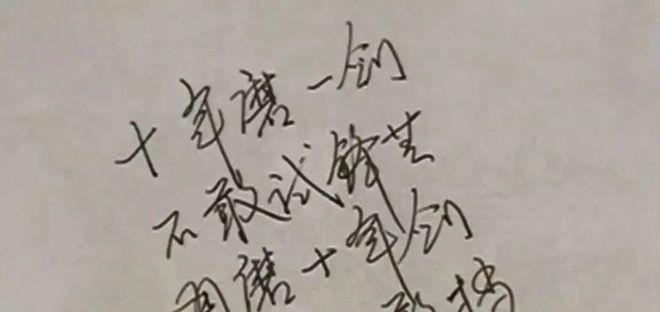 十年磨一剑
不敢试锋芒
再磨十年剑
敢挡